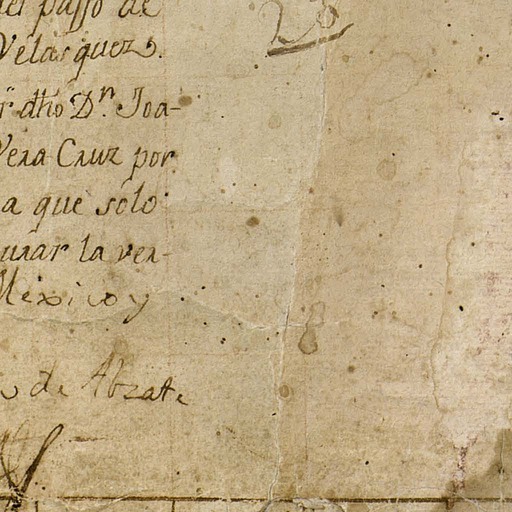 del passo de
Velasquez.
23
r dho Dn. Joa-
Vera Cruz por
a que solo
urar la ver-
Mexico y
de Alzate